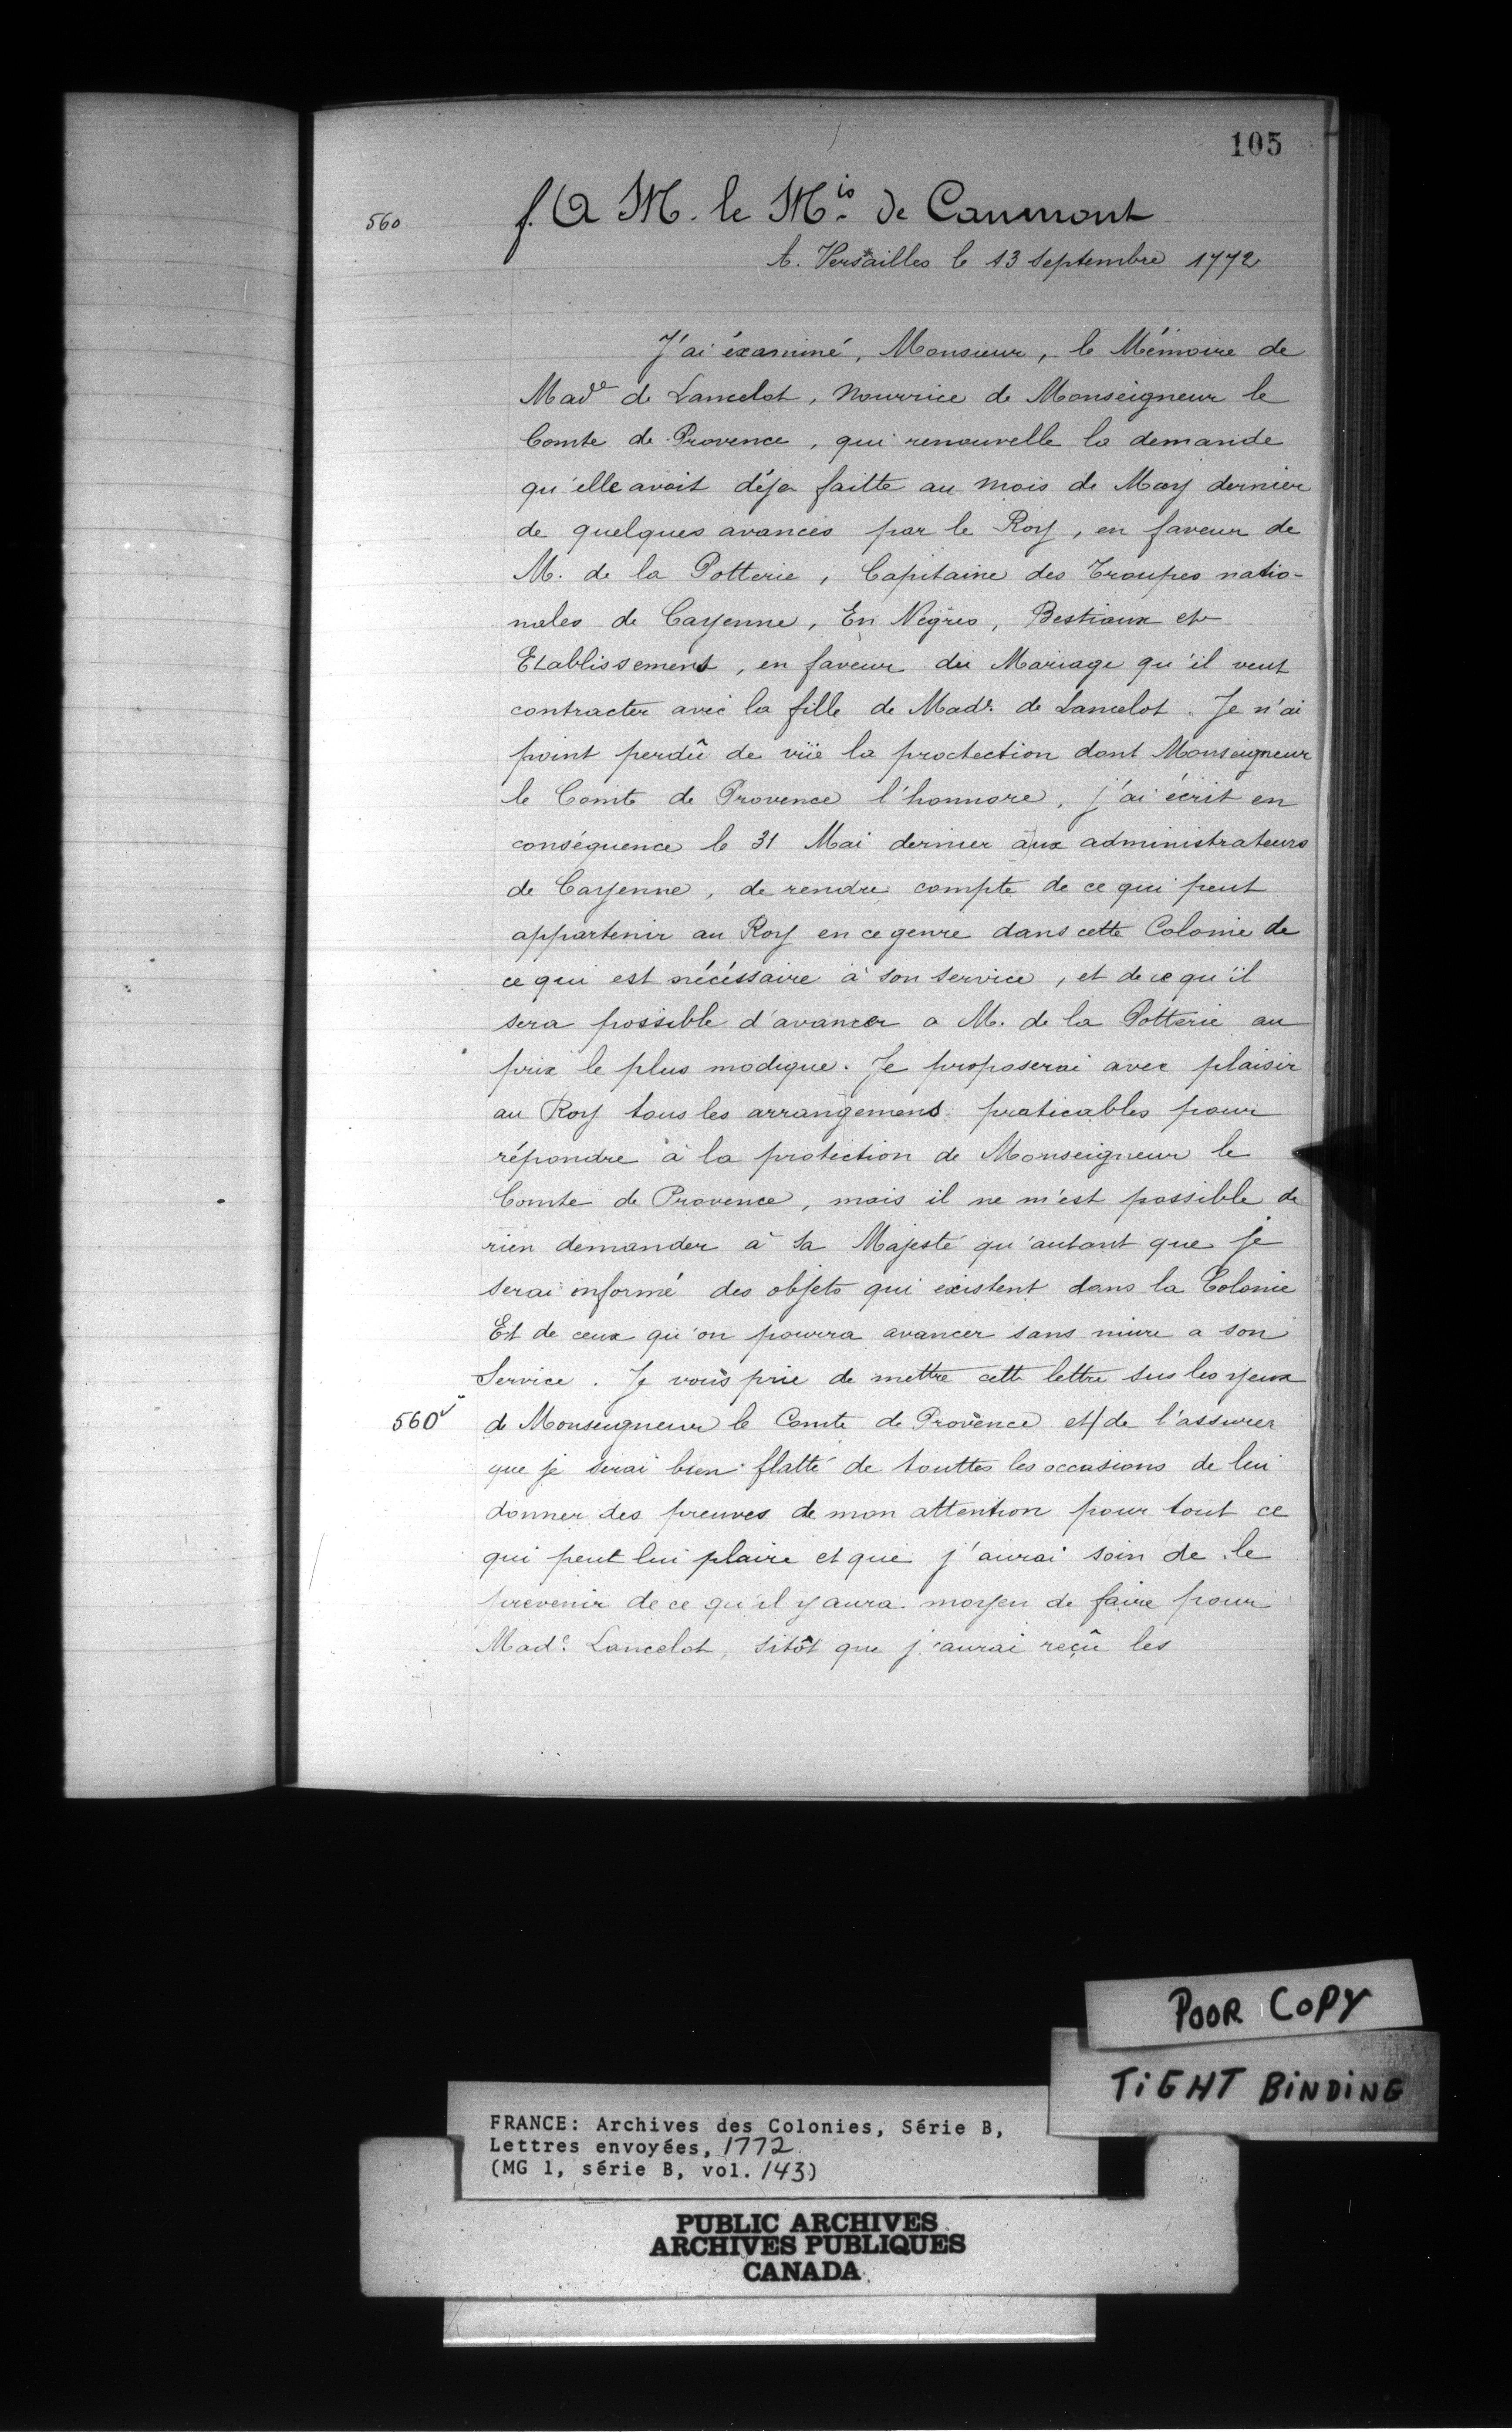 105
560
f. A M. le M.is de Caumont
A. Versailles le 13 Septembre 1772
J'ai éxaminé, Monsieur, le Mémoire de
Made de Lancelot, Nourrice de Monseigneur le
Comte de Provence, qui renouvelle la demande
qu'elle avoit déja faitte au mois de May dernier
de quelques avances par le Roy, en faveur de
M. de la Potterie, Capitaine des Troupes natio-
nales de Cayenne, En Négres, Bestiaux et
Etablissement, en faveur du Mariage qu'il veut
contracter avec la fille de Made. de Lancelot. Je n'ai
point perdû de vüe la proctection dont Monseigneur
le Comte de Provence l'honnore, j'ai écrit en
conséquence le 31 Mai dernier aux administrateurs
de Cayenne, de rendre compte de ce qui peut
appartenir au Roy en ce genre dans cette Colonie de
ce qui est nécéssaire à son service, et de ce qu'il
sera possible d'avancer a M. de la Potterie au
prix le plus modique. Je proposerai avec plaisir
au Roy tous les arrangemens praticables pour
répondre à la protection de Monseigneur le
Comte de Provence, mais il ne m'est possible de
rien demander à Sa Majesté qu'autant que je
serai informé des objets qui existent dans la Colonie
Et de ceux qu'on pourra avancer sans nuire a son
Service. Je vous prie de mettre cette lettre sus les yeux
560v de Monseigneur le Comte de Provence et/de l'assurer
que je serai bien flatté de touttes les occasions de lui
donner des preuves de mon attention pour tout ce
qui peut lui plaire et que j'aurai soin de le
prevenir de ce qu'il y aura moyen de faire pour
Made. Lancelot, sitôt que j'aurai reçû les
POOR COPY
TIGHT BINDING
FRANCE: Archives des Colonies, Série B,
Lettres envoyées, 1772
(MG 1, série B, vol. 143)
PUBLIC ARCHIVES
ARCHIVES PUBLIQUES
CANADA